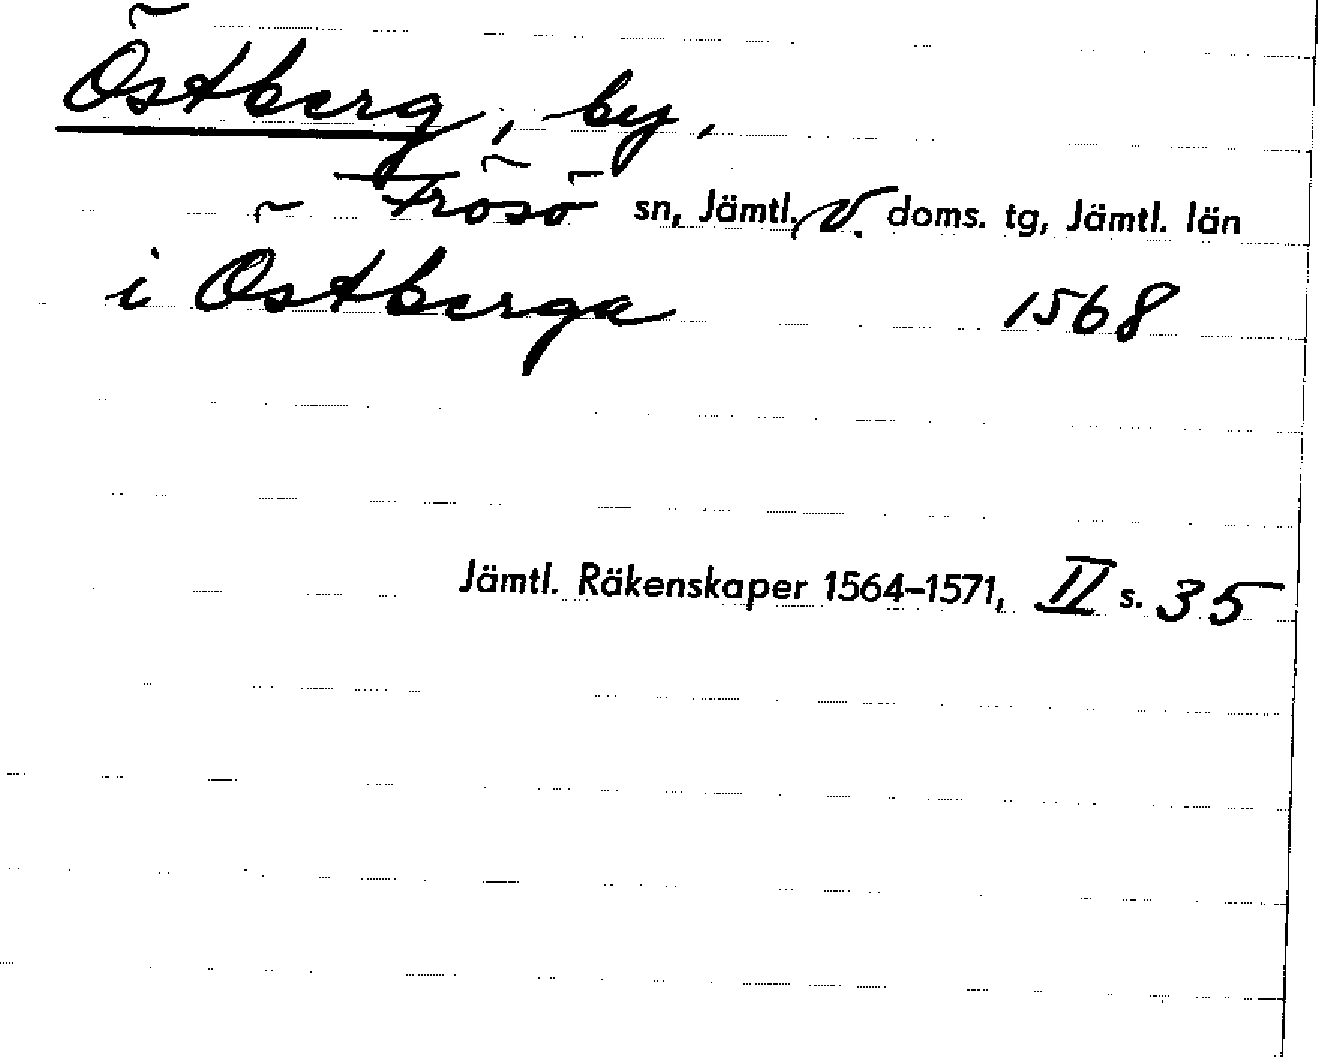 Östberg, by,
Frösö sn, Jämtl. V. doms. tg, Jämtl. län
i Östberga 1568
Jämtl. Räkenskaper 1564–1571, II s. 35